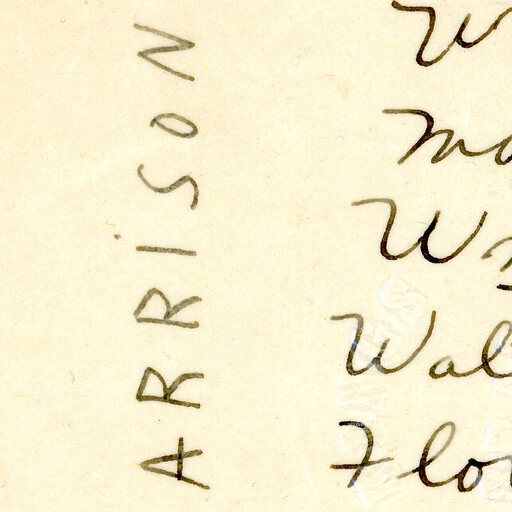 ARRISON
W
Mo
W
Wal
Flo